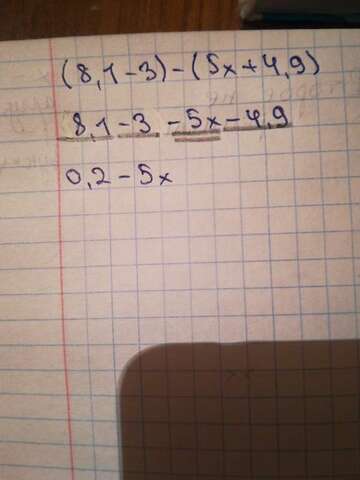 (8,1-3)-(5x+4,9)
8,1-3-5x-4,9
0,2-5x